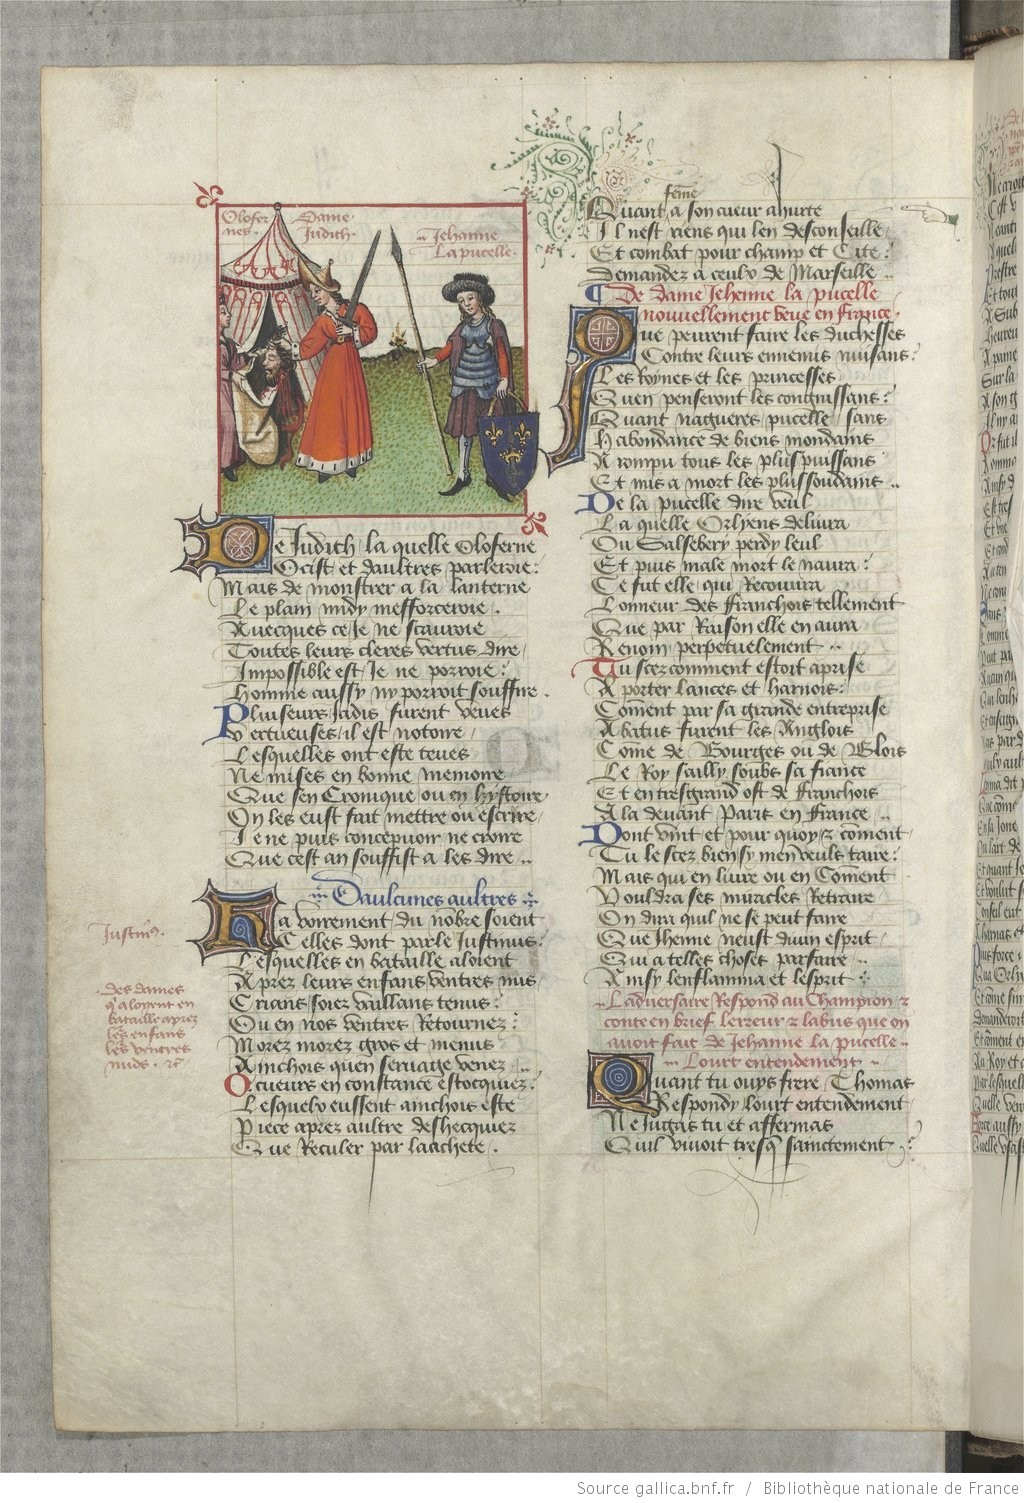 Olofer
nes.
Dame
Judich.
Jehanne
La pucelle.
De Judich la quelle Oloferne
Ocist et daultres parleroie:
Mais de monstrer a la lanterne
Le plain midy mefforceroie.
Avecques ce je ne scauroie
Toutes leurs cleres vertus dire
Impossible est je ne porroie:
Homme aussy ny porroit souffire.
Pluiseurs jadis furent veues
Vertueuses il est notoire
Lesquelles ont este teues
Ne mises en bonne memoire
Que sen Cronique ou en hystoire
On les eust fait mettre ou escrire
Je ne puis concepvoir ne croire
Que cest an souffist a les dire
Daulcunes aultres
Ha voirement du nombre soient
Celles dont parle Justinus:
Lesquelles en bataille aloient
Aprez leurs enfans ventres nus
Crians soiez vaillans tenus:
Ou en nos ventres Retournez:
Morez morez gros et menus
Ainchois quen servaige venez
O cueurs en constance estocquiez:
Lesquelx eussent ainchois este
Piece aprez aultre deshecquiez
Que Reculer par laschete.
Justinus.
des dames
q aloyent en
bataille aprez
leurs enfans
les ventres
nuds. etc
feme
Quant a son cueur ahurte
Il nest riens qui len desconseille
Et combat pour champ et Cite:
Demandez a ceulx de Marseille
De dame Jehenne la pucelle
nouvellement veue en france.
Que peuvent faire les duchesses
Contre leurs ennemis nuisans:
Les Roynes et les princesses
Quen penseront les congnissans:
Quant nagueres pucelle sans
Habondance de biens mondains
A rompu tous les plus puissans
Et mis a mort les plus soudains
De la pucelle dire veul
La quelle Orlyens delivra
Ou Salsebery perdy leul
Et puis male mort le navra:
Ce fut elle qui Recouvra
Lonneur des Franchois tellement
Que par Raison elle en aura
Renom perpetuelement
Tu scez comment estoit aprise
A porter lances et harnois:
Coment par sa grande entreprise
Abatus furent les Anglois
Come de Bourges ou de Blois
Le Roy sailly soubs sa fiance
Et en tresgrand ost de Franchois
Ala devant Paris en France
Dont vint et pour quoy z coment
Tu le scez bien sy men veuls taire:
Mais qui en livre ou en Coment
Vouldra ses miracles Retraire
On dira quil ne se peut faire
Que Jhenne neust divin esprit
Qui a telles choses parfaire
Ainsy lenflamma et lesprit
Ladversaire Respond au Champion z
conte en brief lerreur z labus que on
avoit fait de Jehanne la pucelle
Lourt entendement
Quant tu ouys frere Thomas
Respondy Lourt entendement
Ne jugas tu et affermas
Quil vivoit tresq sainctement:
Source gallica.bnf.fr / Bibliothèque nationale de France